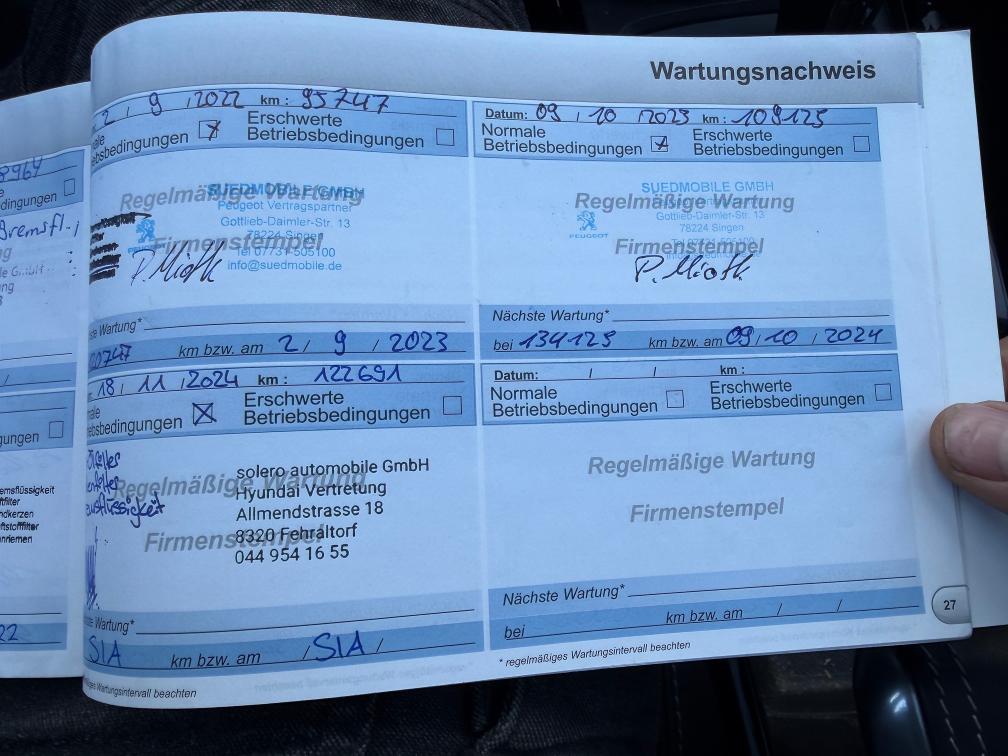 Wartungsnachweis
2 / 9 / 2022 km : 95747
Betriebsbedingungen
Erschwerte
Betriebsbedingungen
Regelmäßige Wartung
SUEDMOBILE GMBH
Peugeot Vertragspartner
Gottlieb-Daimler-Str. 13
78224 Singen
Tel 07731-505100
info@suedmobile.de
Firmenstempel
P. Mioth
Wartung*
km bzw. am 2 / 9 / 2023
Datum: 09 / 10 / 2023 km : 109125
Normale
Betriebsbedingungen
Erschwerte
Betriebsbedingungen
Regelmäßige Wartung
SUEDMOBILE GMBH
Gottlieb-Daimler-Str. 13
78224 Singen
Tel 07731-505100
PEUGEOT
Firmenstempel
P. Mioth
Nächste Wartung*
bei 134125 km bzw. am 09 / 10 / 2024
18 / 11 / 2024 km : 122691
Erschwerte
Betriebsbedingungen
Regelmäßige Wartung
Firmenstempel
solero automobile GmbH
Hyundai Vertretung
Allmendstrasse 18
8320 Fehraltorf
044 954 16 55
Wartung*
SIA km bzw. am / SIA /
Wartungsintervall beachten
Datum: / / km :
Normale
Betriebsbedingungen
Erschwerte
Betriebsbedingungen
Regelmäßige Wartung
Firmenstempel
Nächste Wartung*
bei km bzw. am / /
* regelmäßiges Wartungsintervall beachten
27